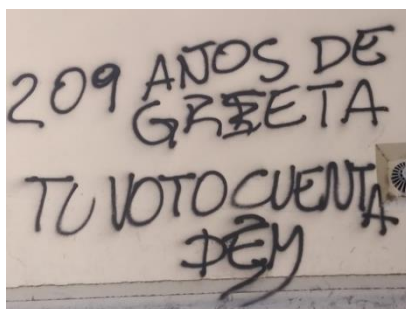 209 AÑOS DE
GRIETA
TU VOTO CUENTA
DEM